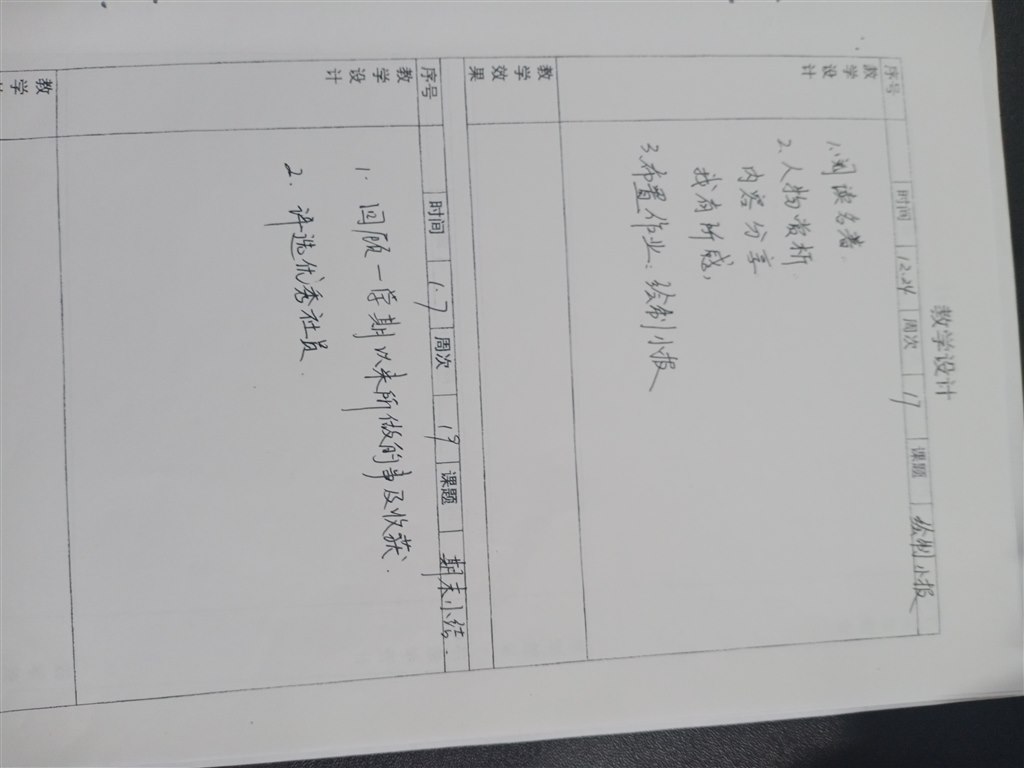 教学设计
序号 时间 12.24 周次 17 课题 绘制小报
教学设计
1.阅读名著.
2.人物赏析.
内容分享
我有所感,
3.布置作业:绘制小报
教学效果
序号 时间 1.7 周次 19 课题 期末小结.
教学设计
1. 回顾一学期以来所做的事及收获.
2. 评选优秀社员.
教学